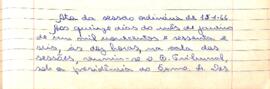 Ata da sessão ordinária de 15-1-66
Aos quinze dias do mês de janeiro
de um mil novecentos e sessenta e
seis, às dez horas, na sala das
sessões, reuniu-se o E. Tribunal,
sob a presidência do Exmo. Sr. Des